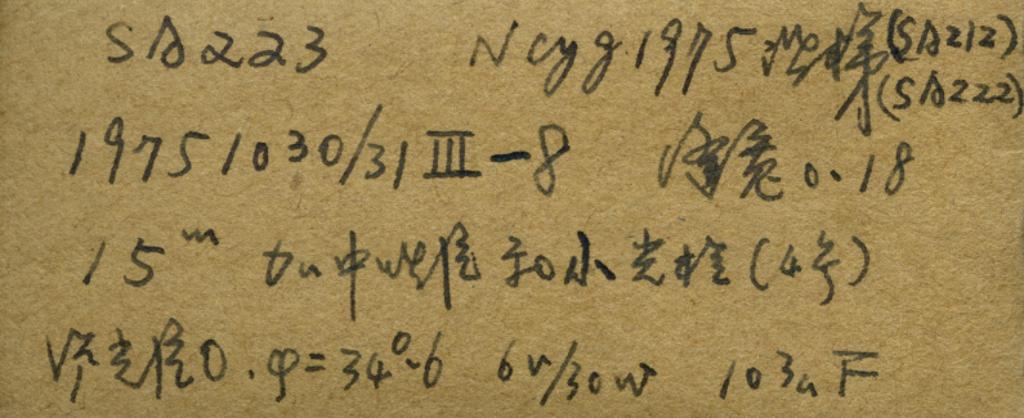 SA223 N cyg 1975 (SA212)
(SA222)
1975 10 30/31 III-8 0.18
15ᵐ 加中性 和小光栏(4号)
光 0. φ=34°.6 6v/30w 103a F